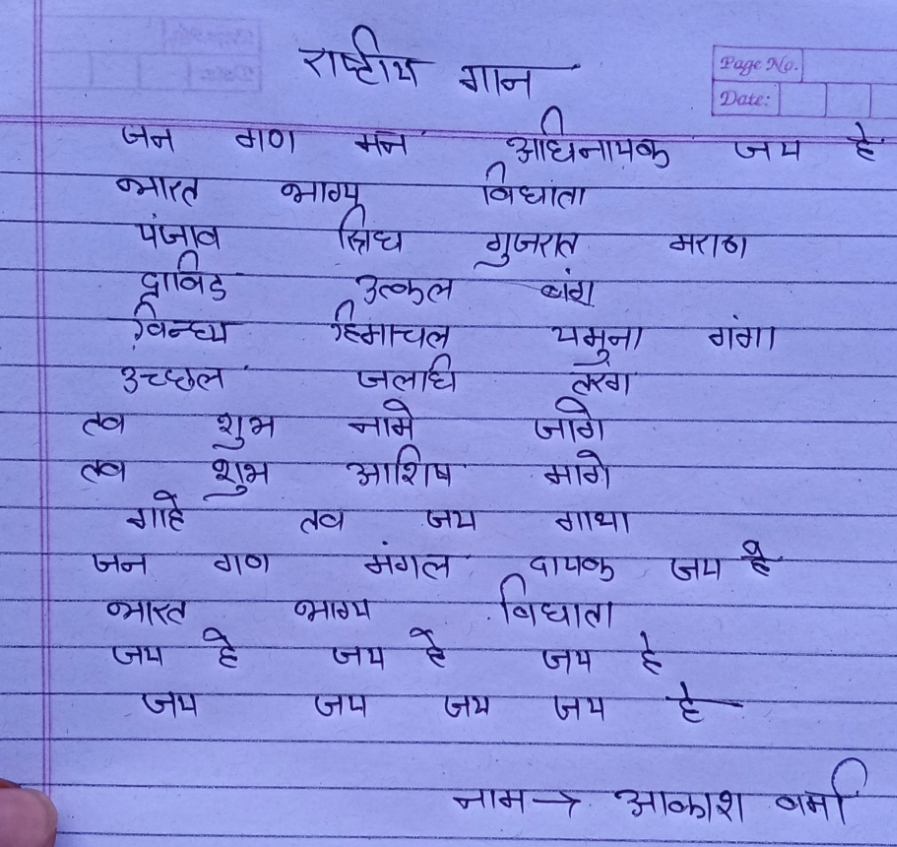 राष्ट्रीय गान
Page No.
Date:
जन गण मन अधिनायक जय हे
भारत भाग्य विधाता
पंजाव सिंध गुजरात मराठा
द्राविड उत्कल बंग
विन्ध्य हिमाचल यमुना गंगा
उच्छल जलधि तरंग
तव शुभ नामे जागे
तव शुभ आशिष मागे
गाहे तव जय गाथा
जन गण मंगल दायक जय हे
भारत भाग्य विधाता
जय हे जय हे जय हे
जय जय जय जय हे
नाम → आकाश वर्मा